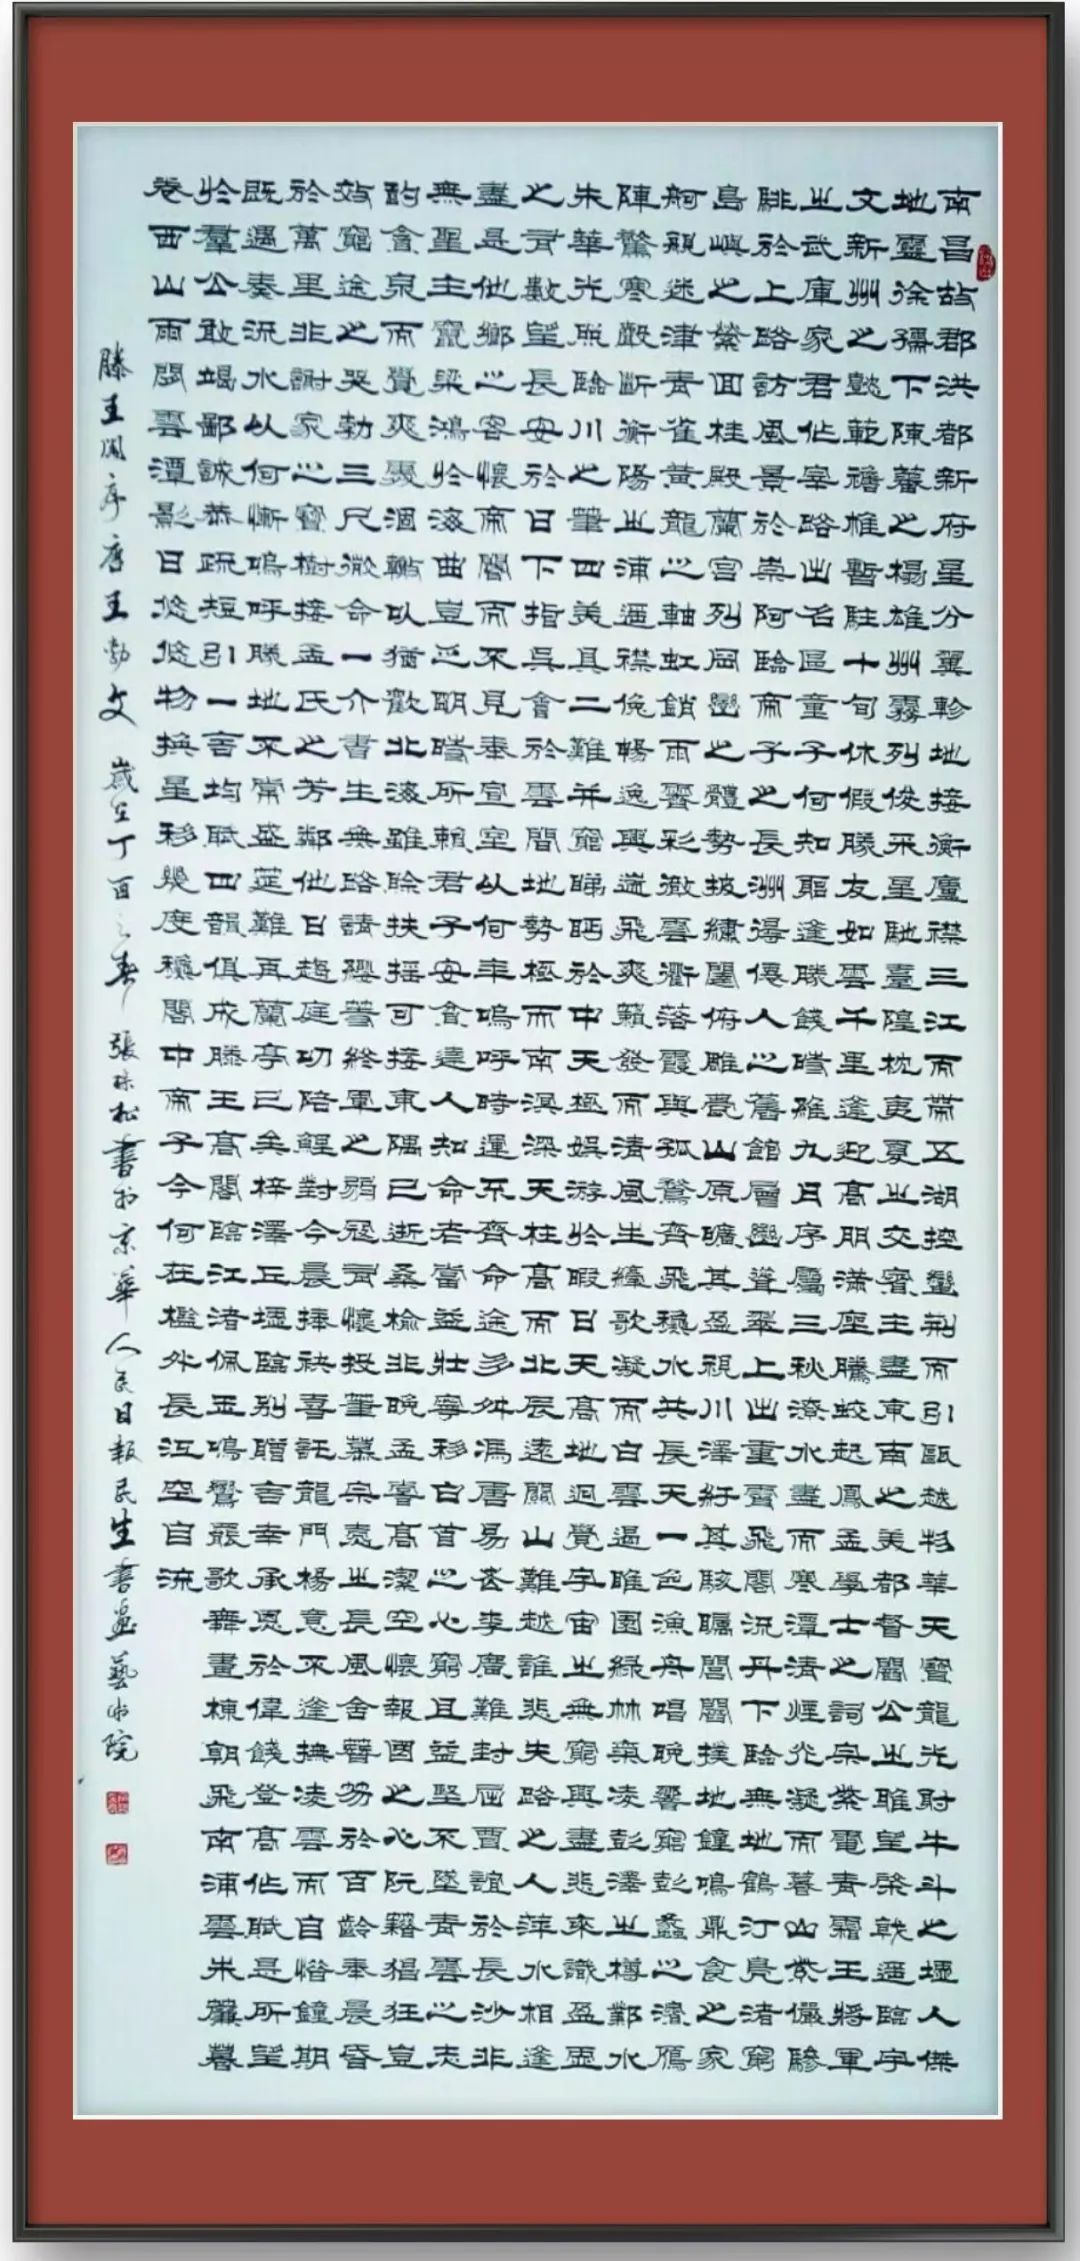 南昌故郡洪都新府星分翼軫地接衡廬襟三江而帶五湖控蠻荆而引甌越物華天寶龍光射牛斗之墟人傑
地靈徐孺下陳蕃之榻雄州霧列俊采星馳臺隍枕夷夏之交賓主盡東南之美都督閻公之雅望棨戟遥臨宇
文新州之懿範襜帷暫駐十旬休假勝友如雲千里逢迎高朋滿座騰蛟起鳳孟學士之詞宗紫電青霜王將軍
之武庫家君作宰路出名區童子何知躬逢勝餞時維九月序屬三秋潦水盡而寒潭清煙光凝而暮山紫儼驂
騑於上路訪風景於崇阿臨帝子之長洲得僊人之舊館層巒聳翠上出重霄飛閣流丹下臨無地鶴汀鳧渚窮
島嶼之縈回桂殿蘭宮列岡巒之體勢披繡闥俯雕甍山原曠其盈視川澤紆其駭矚閭閻撲地鐘鳴鼎食之家
舸艦迷津青雀黃龍之軸虹銷雨霽彩徹雲衢落霞與孤鶩齊飛穐水共長天一色漁舟唱晚響窮彭蠡之濱雁
陣驚寒聲斷衡陽之浦遥襟俛暢逸興遄飛爽籟發而清風生纖歌凝而白雲遏睢園綠竹氣凌彭澤之樽鄴水
朱華光照臨川之筆四美具二難并窮睇眄於中天極娛游於暇日天高地迥覺宇宙之無窮興盡悲來識盈虛
之有數望長安於日下指吳會於雲間地勢極而南溟深天柱高而北辰遠關山難越誰悲失路之人萍水相逢
盡是他鄉之客懷帝閽而不見奉宣室以何年嗚呼時運不齊命途多舛馮唐易老李廣難封屈賈誼於長沙非
無聖主竄梁鴻於海曲豈乏明時所賴君子安貧達人知命老當益壯寧移白首之心窮且益堅不墜青雲之志
酌貪泉而覺爽處涸轍以猶歡北海雖賒扶搖可接東隅已逝桑榆非晚孟嘗高潔空懷報國之心阮籍猖狂豈
效窮途之哭勃三尺微命一介書生無路請纓等終軍之弱冠有懷投筆慕宗愨之長風舍簪笏於百齡奉晨昏
於萬里非謝家之寶樹接孟氏之芳鄰他日趨庭叨陪鯉對今晨捧袂喜託龍門楊意不逢撫凌雲而自惜鐘期
既遇奏流水以何慚嗚呼勝地不常盛筵難再蘭亭已矣梓澤丘墟臨別贈言幸承恩於偉餞登高作賦是所望
於羣公敢竭鄙誠恭疏短引一言均賦四韻俱成滕王高閣臨江渚佩玉鳴鸞罷歌舞畫棟朝飛南浦雲朱簾暮
卷西山雨閒雲潭影日悠悠物換星移幾度穐閣中帝子今何在檻外長江空自流
滕王閣序唐王勃文 歲在丁酉之春 張松書於京華人民日報民生書畫藝術院